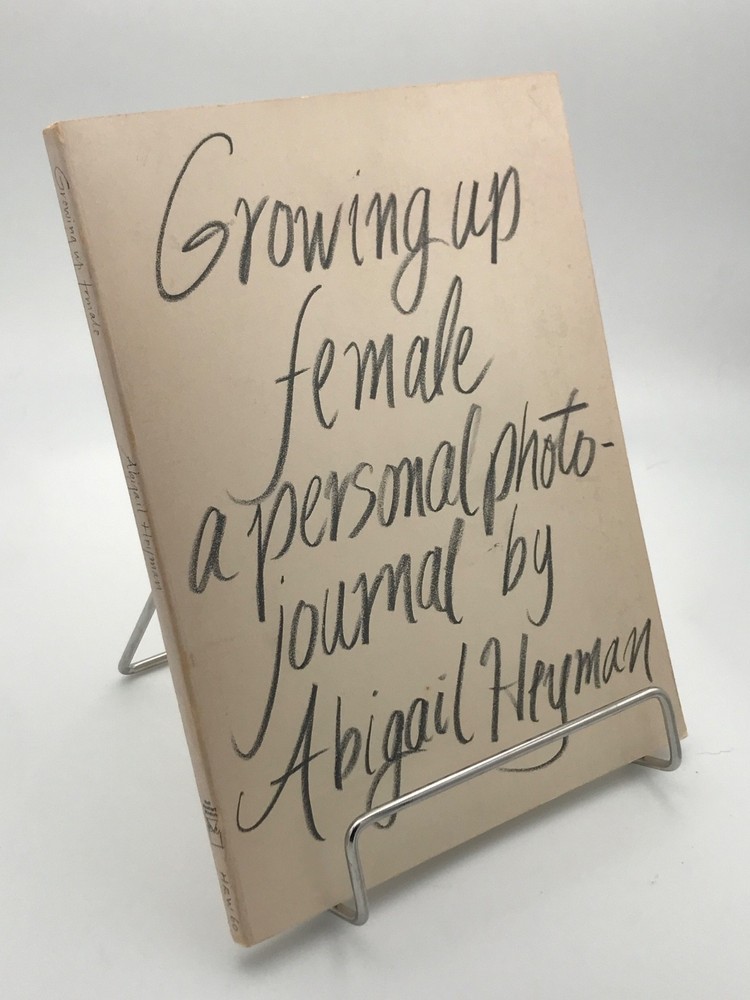 Growing up
female
a personal photo-
journal by
Abigail Heyman
Growing up female
Abigail Heyman